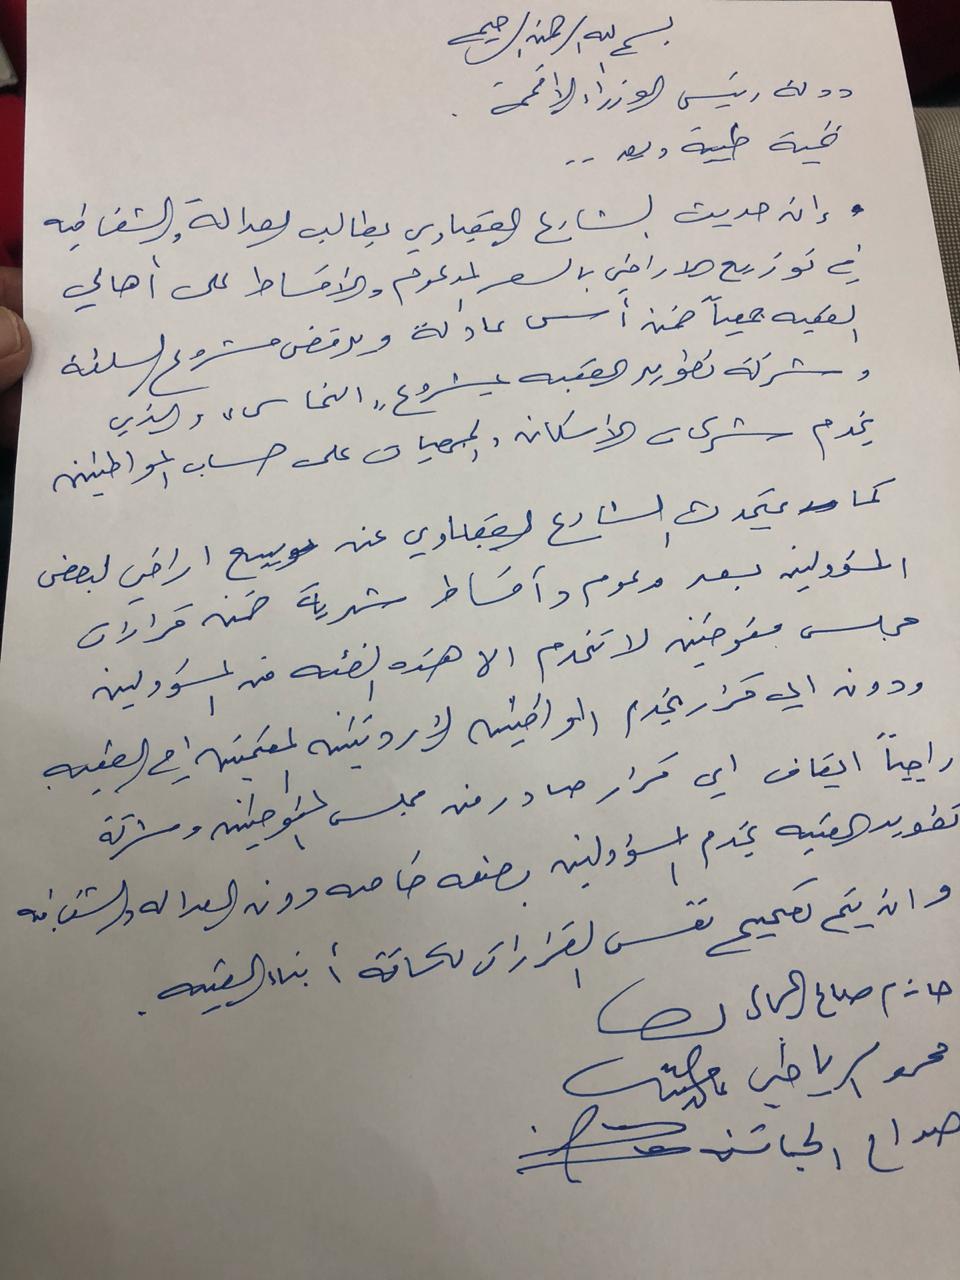 بسم الله الرحمن الرحيم
دولة رئيس الوزراء الأفخم
تحية طيبة وبعد ..
وإن حديث الشارع العقباوي يطالب العدالة والشفافيه
في توزيع الاراضي بالسعر المدعوم والاقساط على أهالي
العقبه جميعاً ضمن أسس عادلة ويرفض مشروع السلطة
وشركة تطوير العقبه بمشروع "النحاسي" والذي
يخدم شركات الاسكان والجمعيات على حساب المواطنين
كما يتحدث الشارع العقباوي عن بيع اراضي لبعض
المسؤولين بسعر مدعوم وأقساط شهرية ضمن قرارات
مجلس مفوضين لا تخدم الا هذه الفئه من المسؤولين
ودون اي قرار يخدم المواطنين الأردنيين المقيمين في العقبه
راجياً ايقاف اي قرار صادر من مجلس المفوضين وشركة
تطوير العقبه يخدم المسؤولين بصفه خاصه دون العداله والشفافيه
وان يتم تصحيح نفس القرارات لكافة أبناء العقبه.
حازم صالح
محمود الرياطي
صداح الحباشنه